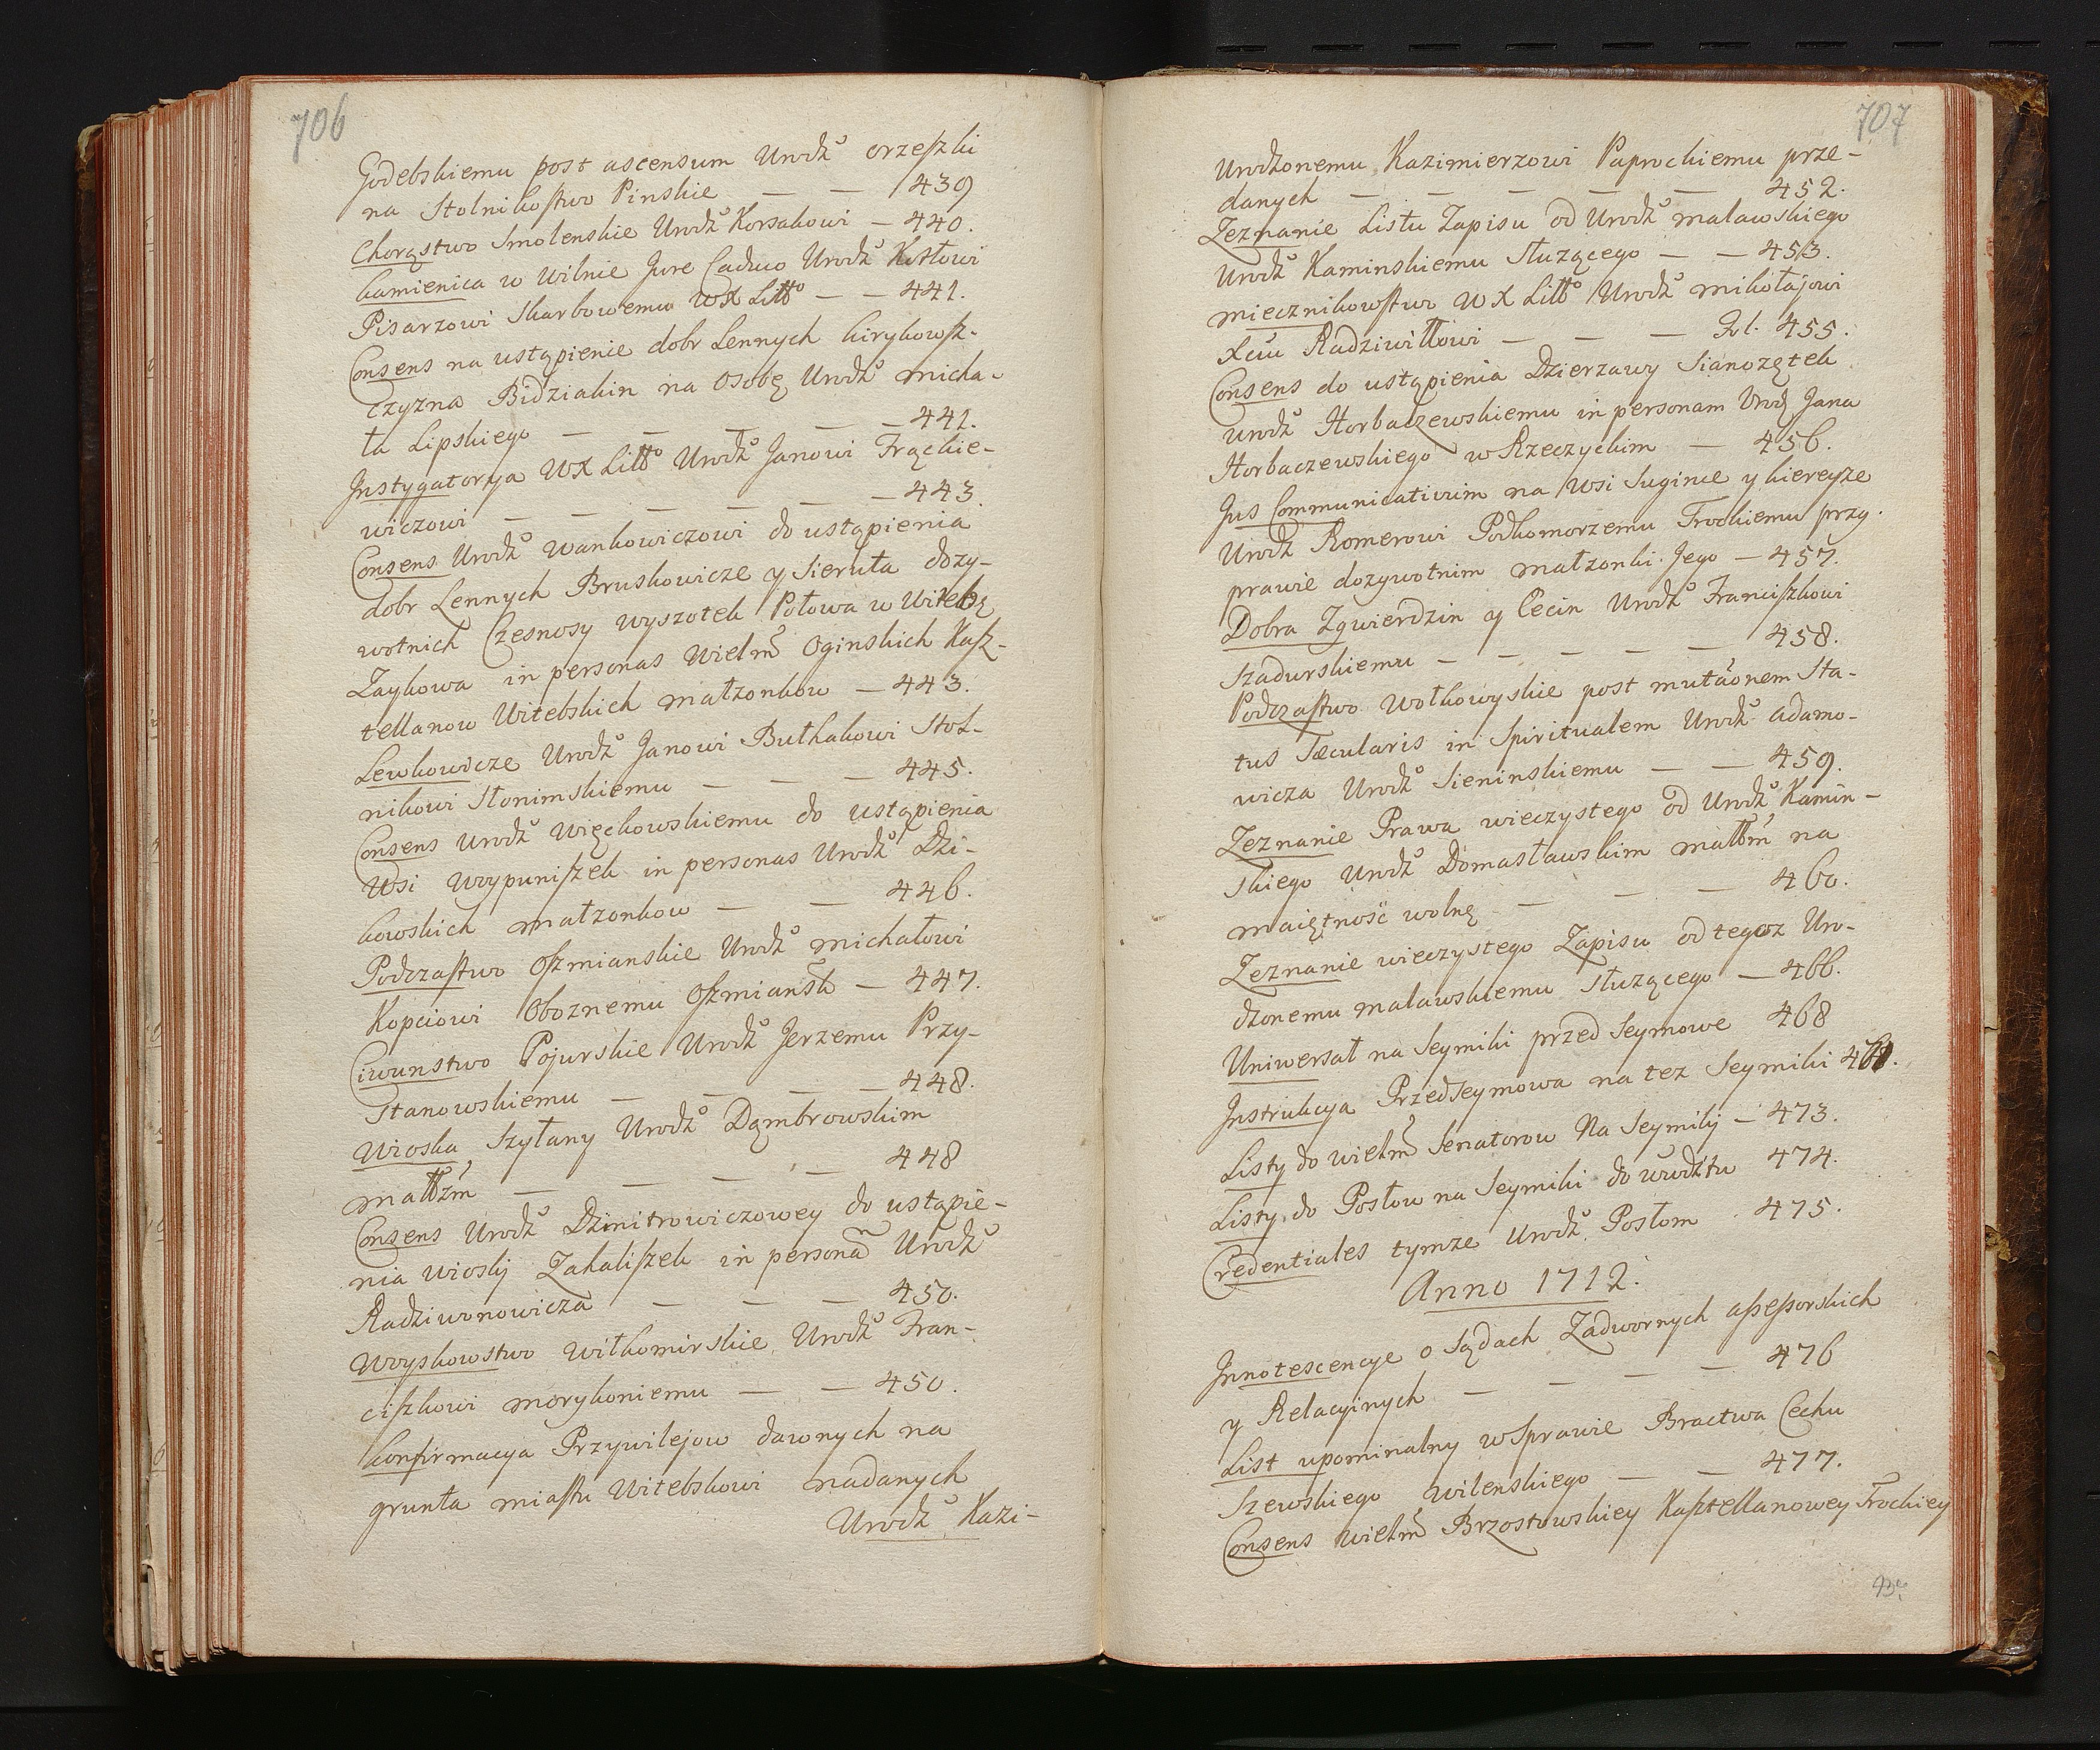 706
Godebskiemu post ascensum Urodz° orzeszki
na Stolnikostwo Pinskie — — 439
Chorąstwo Smolenskie Urodz° Korsakowi — 440.
kamienica w Wilnie Jure Caduco Urodz° Kotłowi
Pisarzowi Skarbowemu WX Litt° — — 441.
Consens na ustąpienie dobr Lennych kirykowsz-
czyzna Bidziakin na Osobę Urodz° Micha-
ła Lipskiego — — — — — 441.
Jnstygatorya WX Litt° Urodz° Janowi Frąckie-
wiczowi — — — — — 443.
Consens Urodz° Wankowiczowi do ustąpienia
dobr Lennych Bruskowicze y Sieruta dozy-
wotnich Czesnosy wyszotek Połowa w Witebs
Zaykowa in personas Wielm Oginskich Kasz-
tellanow Witebskich małzonkow — 443.
Lewkowicze Urodz° Janowi Bułhakowi Stol-
nikowi Słonimskiemu — — — 445.
Consens Urodz° Więckowskiemu do ustąpienia
Wsi Woypuniszek in personas Urodz° Dzi-
kowskich małzonkow — — 446.
Podczastwo Oszmianskie Urodz° Michałowi
Kopciowi Oboznemu Oszmiansk — 447.
Ciwunstwo Pojurskie Urodz° Jerzemu Przy-
stanowskiemu — — — — 448.
Wioska Szyłany Urodz° Dąmbrowskim
małłzm — — — — 448
Consens Urodz° Dzimitrowiczowey do ustąpie-
nia wioski Zahaliszek in personam Urodz°
Radziwonowicza — — — 450.
Woyskowstwo Wiłkomirskie Urodz° Fran-
ciszkowi Morykoniemu — — 450.
konfirmacya Przywilejow dawnych na
grunta miastu Witebskowi nadanych
Urodz° Kazi-
707
Urodzonemu Kazimierzowi Paprockiemu prze-
danych — — — — — 452.
Zeznanie Listu Zapisu od Urodz° Malawskiego
Urodz° Kaminskiemu słuzącego — — 453.
Miecznikowstwo WX Litt° Urodz° Mikołajowi
Xciu Radziwiłłowi — — — 455.
Consens do ustąpienia Dzierzawy Sianozątek
Urodz° Horbaczewskiemu in personam Urodz Jana
Horbaczewskiego w Rzeczyckim — 456.
Jus Communicativum na Wsi Suginie y kiereyze
Urodz° Romerowi Podkomorzemu Trockiemu przy
prawie dozywotnim małzonki Jego — 457.
Dobra Zgwierdzin y Cecin Urodz° Franciszkowi
Szadurskiemu — — — — — 458.
Podczastwo Wołkowyskie post mutaonem Sta-
tus Sæcularis in Spiritualem Urodz° Adamo-
wicza Urodz° Sieninskiemu — — 459.
Zeznanie Prawa wieczystego od Urodz° Kamin-
skiego Urodz° Domasławskim małłm na
maiętność wolną — — — 460.
Zeznanie wieczystego Zapisu od tegoz Uro-
dzonemu Malawskiemu słuzącego — 466.
Uniwersał na Seymiki przed Seymowe 468
Jnstrukcya PrzedSeymowa na tez Seymiki
Listy do wielm Senatorow Na Seymiki — 473.
Listy do Posłow na Seymiki do wwdztw 474.
Credentiales tymze Urodz° Posłom 475.
Anno 1712.
Jnnotescencye o Sądach Zadwornych assessorskich
y Relacyinych — — — — 476
List upominalny w Sprawie Bractwa Cechu
Szewskiego wilenskiego — — 477.
Consens wielm Brzostowskiey Kasztellanowey Trockiey